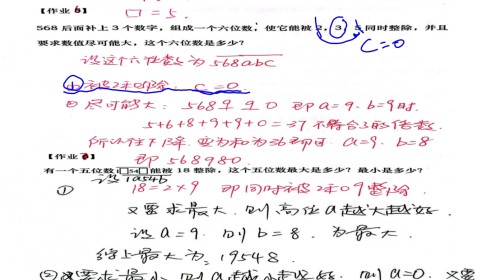 【作业5】 □=5.
568后面补上3个数字，组成一个六位数，使它能被2, 3, 5同时整除，并且
C=0
要求数值尽可能大，这个六位数是多少？
设这个六位数为568abc
① 被2和5整除： C=0
② 尽可能大：568 9 9 0 即a=9. b=9时
5+6+8+9+9+0=37不符合3的倍数.
所以往下降. 变为和为36即可. a=9. b=8
即 568980.
【作业
有一个五位数1□54□能被18整除，这个五位数最大是多少？最小是多少？
设 1a54b
① 18=2×9 即同时被2和9整除
又要求最大. 则高位a越大越好.
设a=9. 则b=8. 为最大.
综上最大为: 19548.
②又要求最小. 则a越小越好. 则a=0. 又要